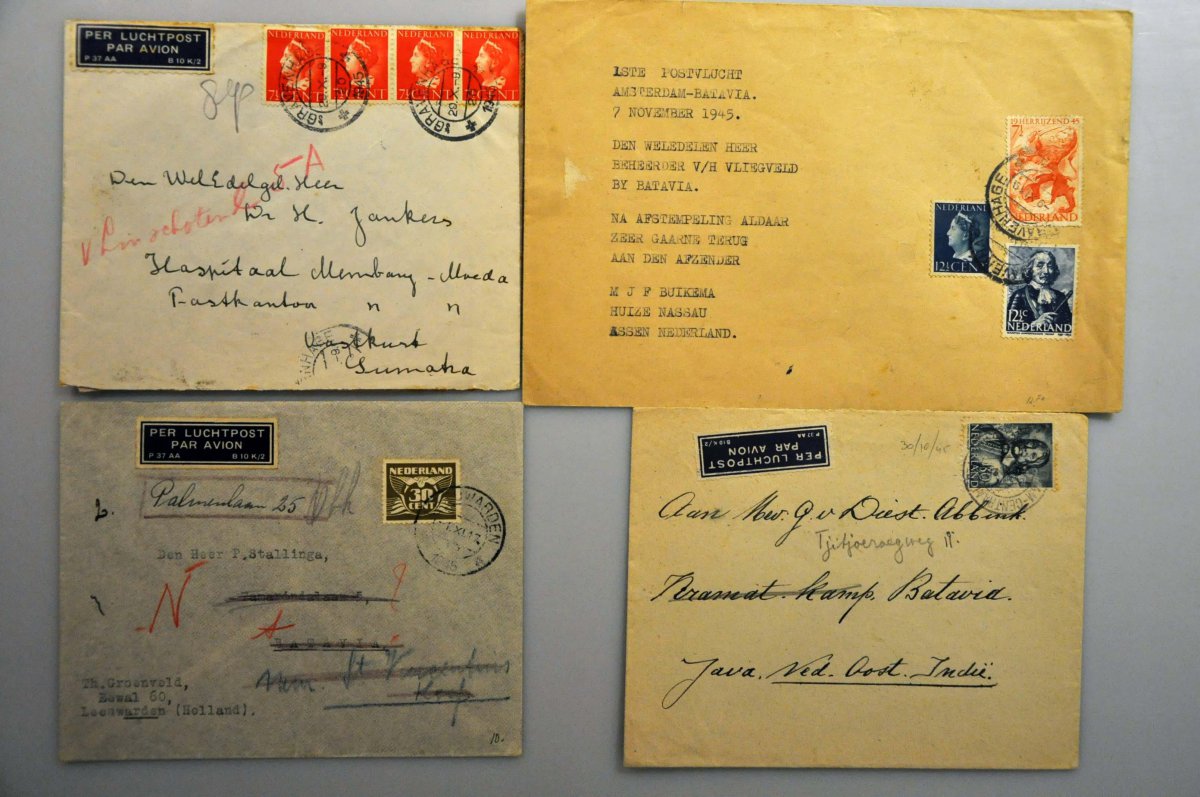 PER LUCHTPOST
PAR AVION
P 37 AA B 10 K/2
NEDERLAND
7½ CENT
7½ CENT
7½ CENT
7½ CENT
'S GRAVENHAGE
20.X.-8
1945
5 A
Den WelEdelgel. Heer
Dr H. Jankers
v Linschotenln
Hospitaal Membang-Moeda
Postkantoor " "
Oostkust
Sumatra
1STE POSTVLUCHT
AMSTERDAM-BATAVIA.
7 NOVEMBER 1945.
DEN WELEDELEN HEER
BEHEERDER V/H VLIEGVELD
BY BATAVIA.
NA AFSTEMPELING ALDAAR
ZEER GAARNE TERUG
AAN DEN AFZENDER
M J F BUIKEMA
HUIZE NASSAU
ASSEN NEDERLAND.
19 HERRIJZEND 45
7½
NEDERLAND
NEDERLAND
12½ CENT
12½ C
NEDERLAND
PER LUCHTPOST
PAR AVION
P 37 AA B 10 K/2
NEDERLAND
30
CENT
Palmenlaan 25
Den Heer P. Stallinga,
N
?
BATAVIA.
St Vincentius
Th. Groenveld,
Eewal 60,
Leeuwarden (Holland).
10.
PER LUCHTPOST
PAR AVION
P 37 AA B 10 K/2
NEDERLAND
30/10/45
Aan Mev. G. v Diest. Abbink.
Tjitjoeroegweg 11.
Kramat kamp. Batavia.
Java. Ned. Oost. Indië.